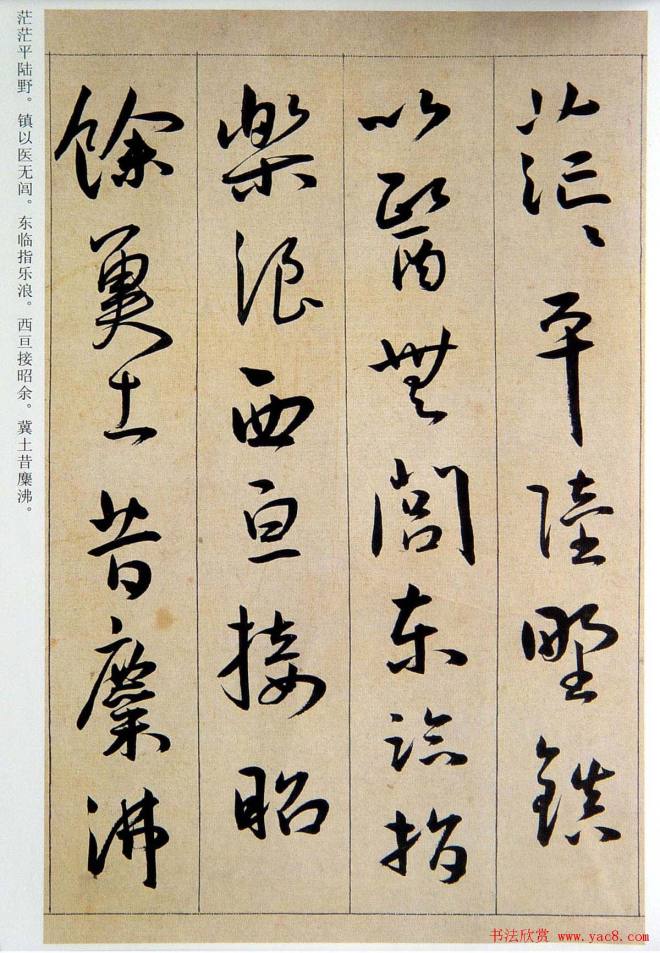 茫〻平陸野鎮
以醫無閭東臨指
樂浪西亘接昭
餘冀土昔麋沸
茫茫平陆野。镇以医无闾。东临指乐浪。西亘接昭余。冀土昔麋沸。
书法欣赏 www.yac8.com